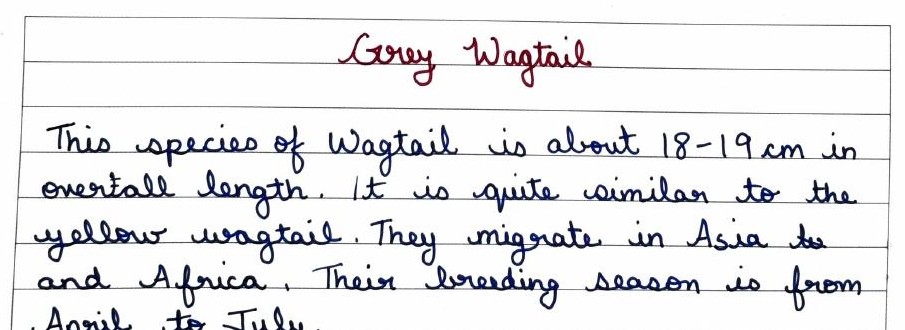 Grey Wagtail
This species of Wagtail is about 18-19 cm in
overtall length. It is quite similar to the
yellow wagtail. They migrate in Asia to
and Africa. Their breeding season is from
April to July.